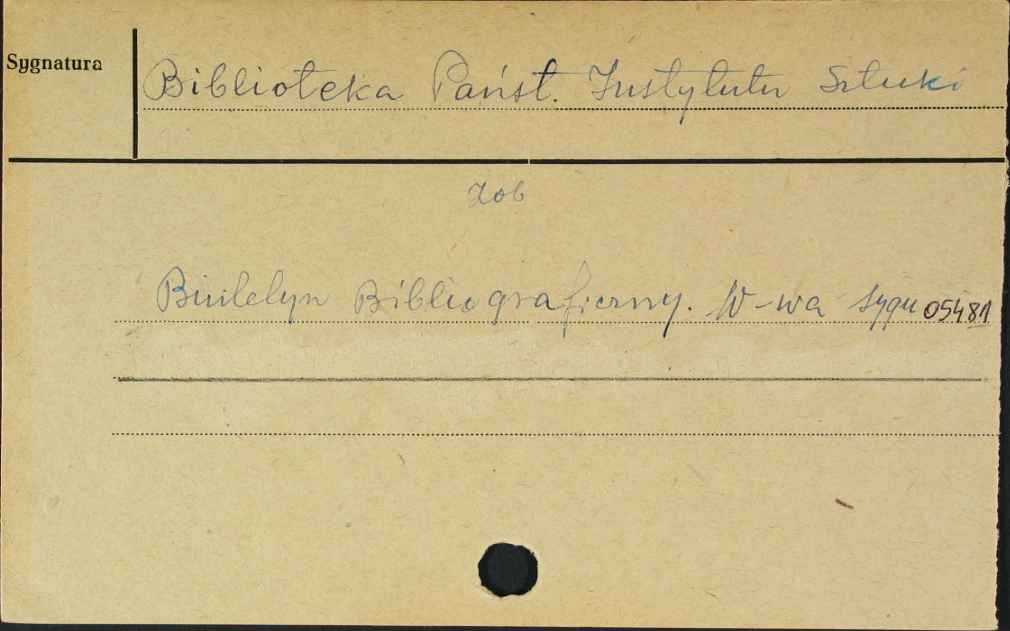 Sygnatura
Biblioteka Państ. Instytutu Sztuki
Zob
Biuletyn Bibliograficzny. W-wa sygn 05481